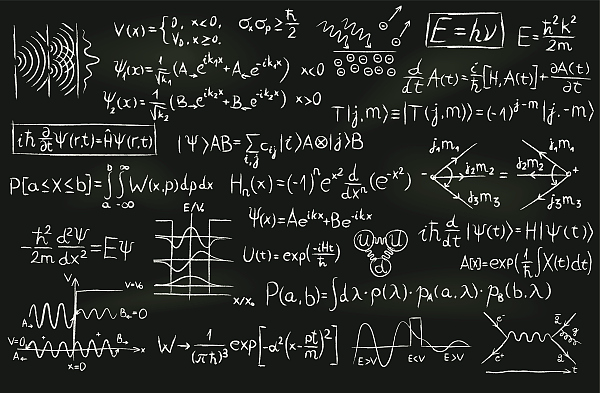 V(x) = { 0, x<0,
V₀, x≥0.
σₓσₚ ≥ ħ/2
E = hν
E = ħ²k²/2m
ψ₁(x) = 1/√k₁ (A→e^{ik₁x} + A←e^{-ik₁x}) x<0
d/dt A(t) = i/ħ [H,A(t)] + ∂A(t)/∂t
ψ₂(x) = 1/√k₂ (B→e^{ik₂x} + B←e^{-ik₂x}) x>0
T|j,m⟩ ≡ |T(j,m)⟩ = (-1)^{j-m} |j,-m⟩
iħ ∂/∂t Ψ(r,t) = ĤΨ(r,t)
|Ψ⟩AB = Σ_{i,j} c_{ij} |i⟩A⊗|j⟩B
j₁m₁ j₂m₂ j₃m₃ - = j₁m₁ j₂m₂ j₃m₃ +
P[a≤X≤b] = ∫_a^b ∫_{-∞}^{∞} W(x,p)dpdx
Hₙ(x) = (-1)ⁿ e^{x²} d/dxⁿ (e^{-x²})
E/V₀
ψ(x) = Ae^{ikx} + Be^{-ikx}
iħ d/dt |Ψ(t)⟩ = H|Ψ(t)⟩
-ħ²/2m d²Ψ/dx² = EΨ
U(t) = exp(-iHt/ħ)
u u d
A[x] = exp(1/ħ ∫X(t)dt)
V V=V₀
x/x₀
P(a,b) = ∫dλ·ρ(λ)·p_A(a,λ)·p_B(b,λ)
A→ B←=0
V=0 A← B→ x
x=0
W → 1/(πħ)³ exp[-α²(x-pt/m)²]
E>V E<V E>V
e⁻ e⁺ q̄ q g t